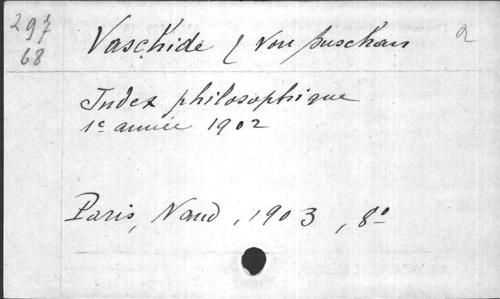 297
68
Vaschide & Von Buschan
2
Index philosophique
1e année 1902
Paris, Naud, 1903, 8o